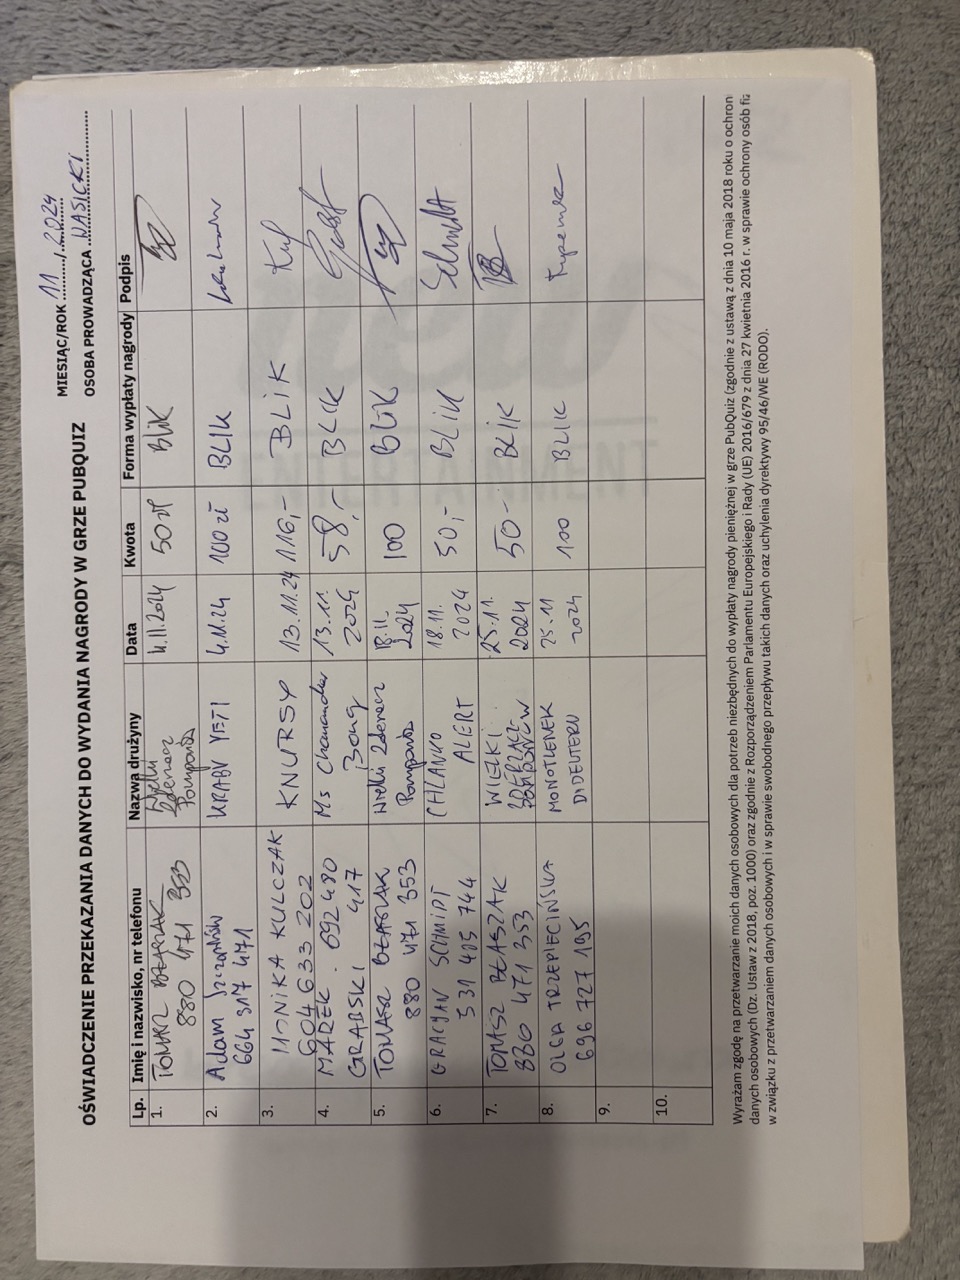 OŚWIADCZENIE PRZEKAZANIA DANYCH DO WYDANIA NAGRODY W GRZE PUBQUIZ
MIESIĄC/ROK 11 / 2024
OSOBA PROWADZĄCA WASICKI
Lp. Imię i nazwisko, nr telefonu Nazwa drużyny Data Kwota Forma wypłaty nagrody Podpis
1. TOMASZ BŁASZAK 880 471 353 Wielki Zderzacz Pomponów 4.11.2024 50 zł BLIK
2. Adam 664 317 471 KRABY YETI 4.11.24 100 zł BLIK
3. MONIKA KULCZAK 604 633 202 KNURSY 13.11.24 116,- BLIK
4. MAREK GRABSKI 692 480 417 Ms Chanandler Bong 13.11.2024 58,- BLIK
5. TOMASZ BŁASZAK 880 471 353 Wielki Zderzacz Pomponów 18.11.2024 100 BLIK
6. GRACJAN SCHMIDT 531 405 744 CHLANKO ALERT 18.11.2024 50,- BLIK Schmidt
7. TOMASZ BŁASZAK 880 471 353 WIELKI 25.11.2024 50- BLIK
8. OLGA TRZEPIECIŃSKA 696 727 195 MONOTLENEK DIDEUTERU 25.11 2024 100 BLIK
9.
10.
Wyrażam zgodę na przetwarzanie moich danych osobowych dla potrzeb niezbędnych do wypłaty nagrody pieniężnej w grze PubQuiz (zgodnie z ustawą z dnia 10 maja 2018 roku o ochron
danych osobowych (Dz. Ustaw z 2018, poz. 1000) oraz zgodnie z Rozporządzeniem Parlamentu Europejskiego i Rady (UE) 2016/679 z dnia 27 kwietnia 2016 r. w sprawie ochrony osób fiz
w związku z przetwarzaniem danych osobowych i w sprawie swobodnego przepływu takich danych oraz uchylenia dyrektywy 95/46/WE (RODO).
new
ENTERTAINMENT